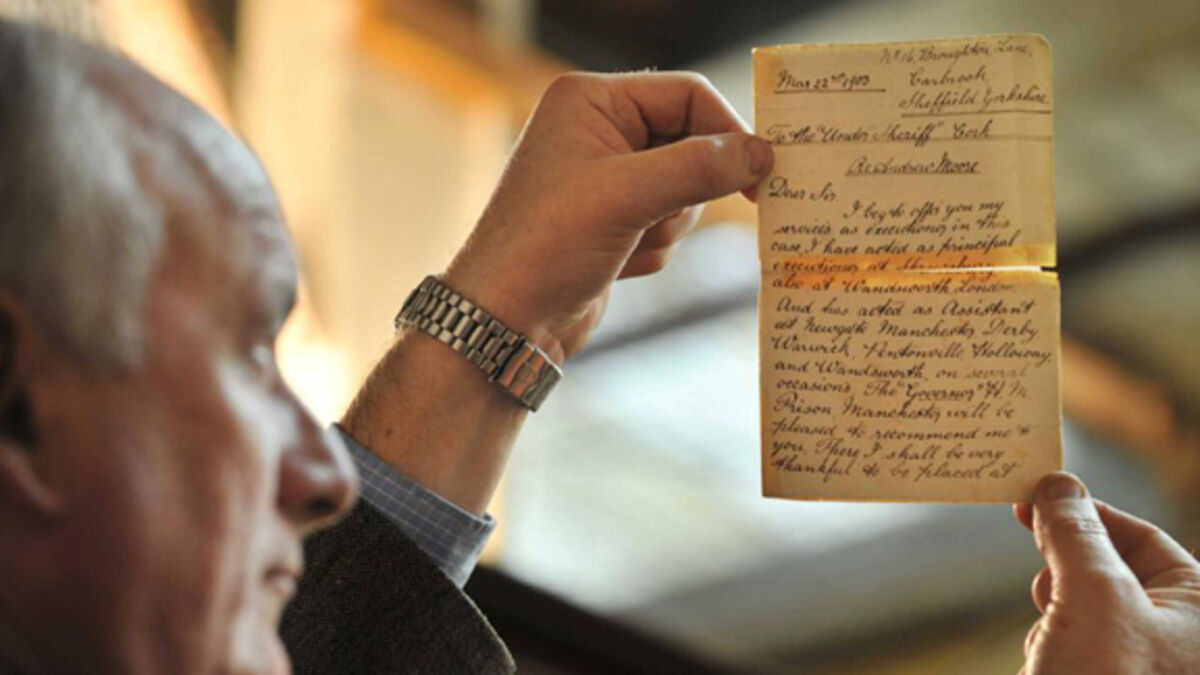 No 16, Broughton Lane,
Mar 22nd 1903
Carbrook,
Sheffield Yorkshire
To the "Under Sheriff" Cork
Re Andrew Moore
Dear Sir.
I beg to offer you my
services as executioner in this
case, I have acted as principal
executioner at Shrewsbury
also at Wandsworth London.
And has acted as Assistant
at Newgate Manchester Derby
Warwick, Pentonville, Holloway,
and Wandsworth, on several
occasions. The "Governor" H. M.
Prison, Manchester will be
pleased to recommend me to
you. There, I shall be very
thankful to be placed at